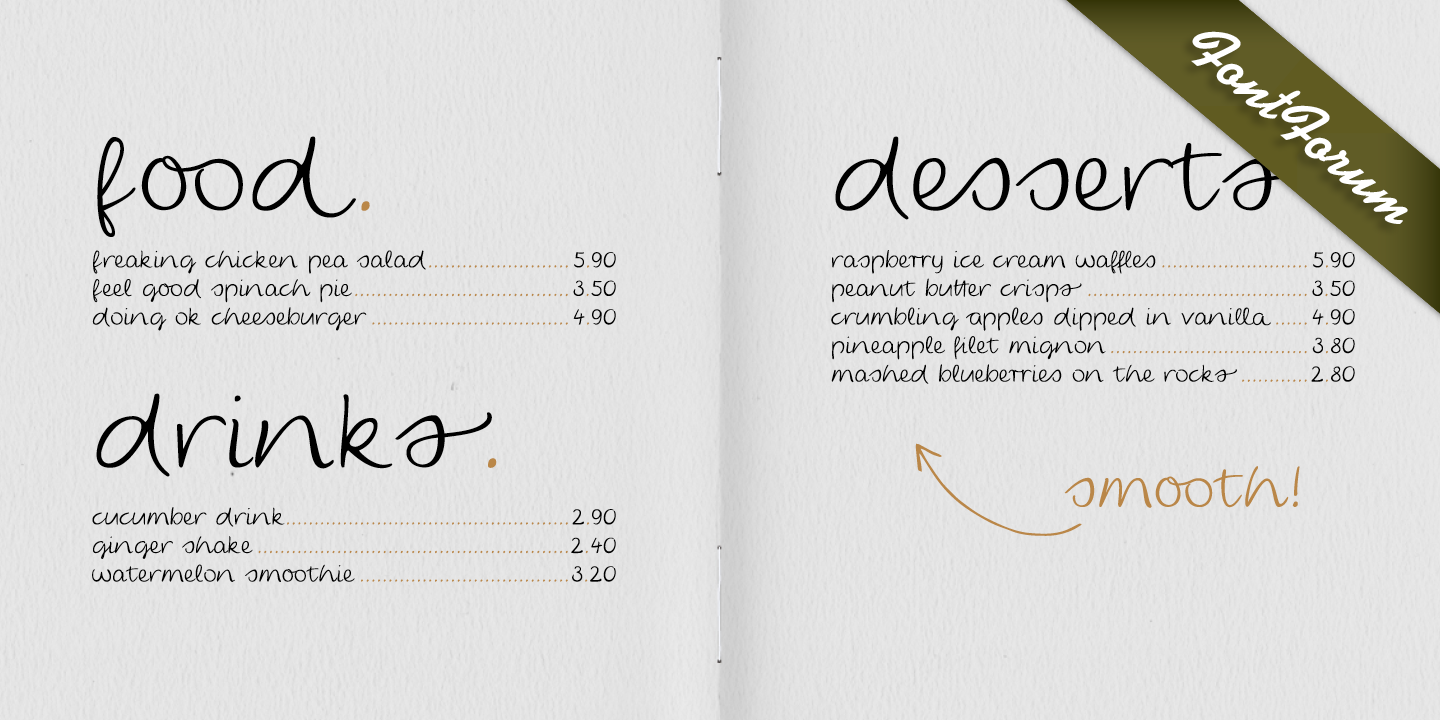 food.
freaking chicken pea salad.............................5.90
feel good spinach pie.............................3.50
doing ok cheeseburger.............................4.90
drinks.
cucumber drink.............................2.90
ginger shake.............................2.40
watermelon smoothie.............................3.20
desserts
raspberry ice cream waffles.............................5.90
peanut butter crisps.............................3.50
crumbling apples dipped in vanilla......4.90
pineapple filet mignon.............................3.80
mashed blueberries on the rocks.............2.80
smooth!
FontForum